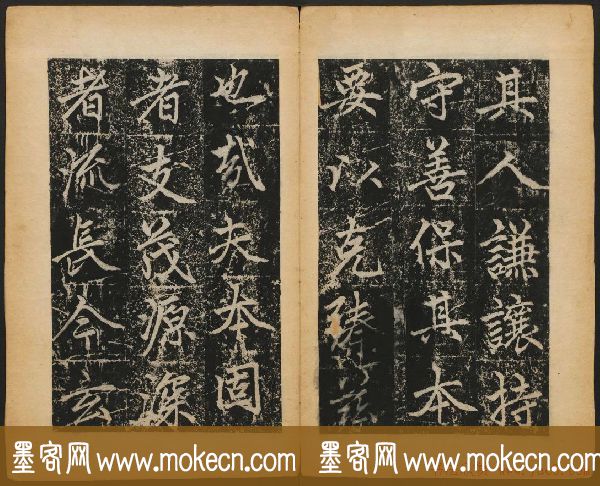 其人謙讓持
守善保其本
要以克臻茲
也哉夫本固
者支茂源深
者流長今玄
墨客网 www.mokecn.com
墨客网 www.mokecn.com